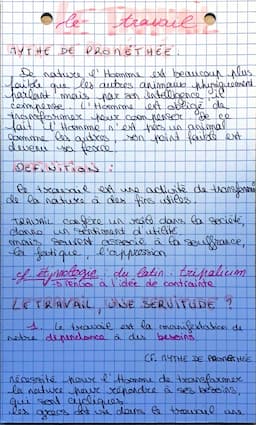 le travail
MYTHE DE PROMÉTHÉE.
De nature l'Homme est beaucoup plus
faible que les autres animaux physiquement
parlant mais par son intelligence il
compense. L'Homme est obligé de
transformer pour compenser de ce
fait l'Homme n'est pas un animal
comme les autres, son point faible est
devenu sa force.
DÉFINITION :
Le travail est une activité de transformation
de la nature à des fins utiles.
TRAVAIL confère un rôle dans la société,
donne un sentiment d'utilité
mais souvent associé à la souffrance,
la fatigue, l'oppression
cf étymologie : du latin : tripalium
→ renvoi à l'idée de contrainte
LE TRAVAIL, UNE SERVITUDE ?
1. Le travail est la manifestation de
notre dépendance à des besoins
CF. MYTHE DE PROMÉTHÉE
nécessité pour l'Homme de transformer
la nature pour répondre à ses besoins,
qui sont cycliques.
les grecs ont vu dans le travail une